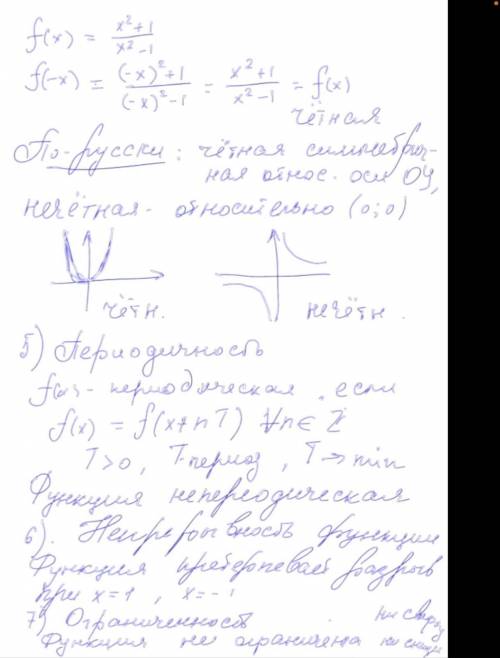 f(x) = x²+1 / x²-1
f(-x) = (-x)²+1 / (-x)²-1 = x²+1 / x²-1 = f(x)
чётная
По-русски: чётная симметрич-
ная относ. оси OY,
нечётная - относительно (0;0)
чётн. нечётн.
5) Периодичность
f(x) - периодическая, если
f(x) = f(x+nT) ∀n∈Z
T>0, T-период, T→min
Функция непериодическая
6). Непрерывность функции
Функция претерпевает разрыв
при x=1, x=-1
7) Ограниченность ни сверху
Функция не ограничена ни снизу